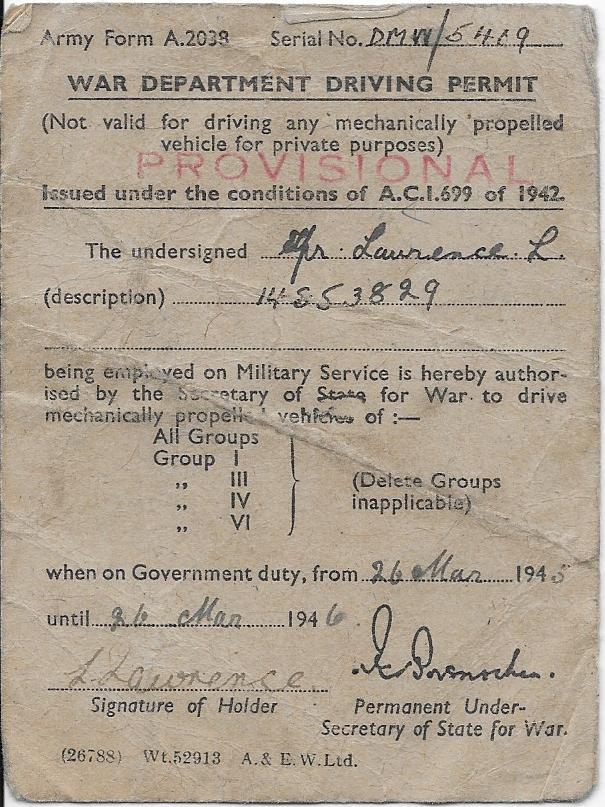 Army Form A.2038 Serial No. DMW/5419
WAR DEPARTMENT DRIVING PERMIT
(Not valid for driving any mechanically propelled
vehicle for private purposes)
PROVISIONAL
Issued under the conditions of A.C.I.699 of 1942.
The undersigned Lawrence. L.
(description) 14553829
being employed on Military Service is hereby author-
ised by the Secretary of State for War to drive
mechanically propelled vehicles of :—
All Groups
Group I
„ III
„ IV
„ VI
(Delete Groups
inapplicable)
when on Government duty, from 26 Mar 1945
until 26 Mar 1946.
L Lawrence
Signature of Holder
Permanent Under-
Secretary of State for War.
(26788) Wt.52913 A. & E.W.Ltd.